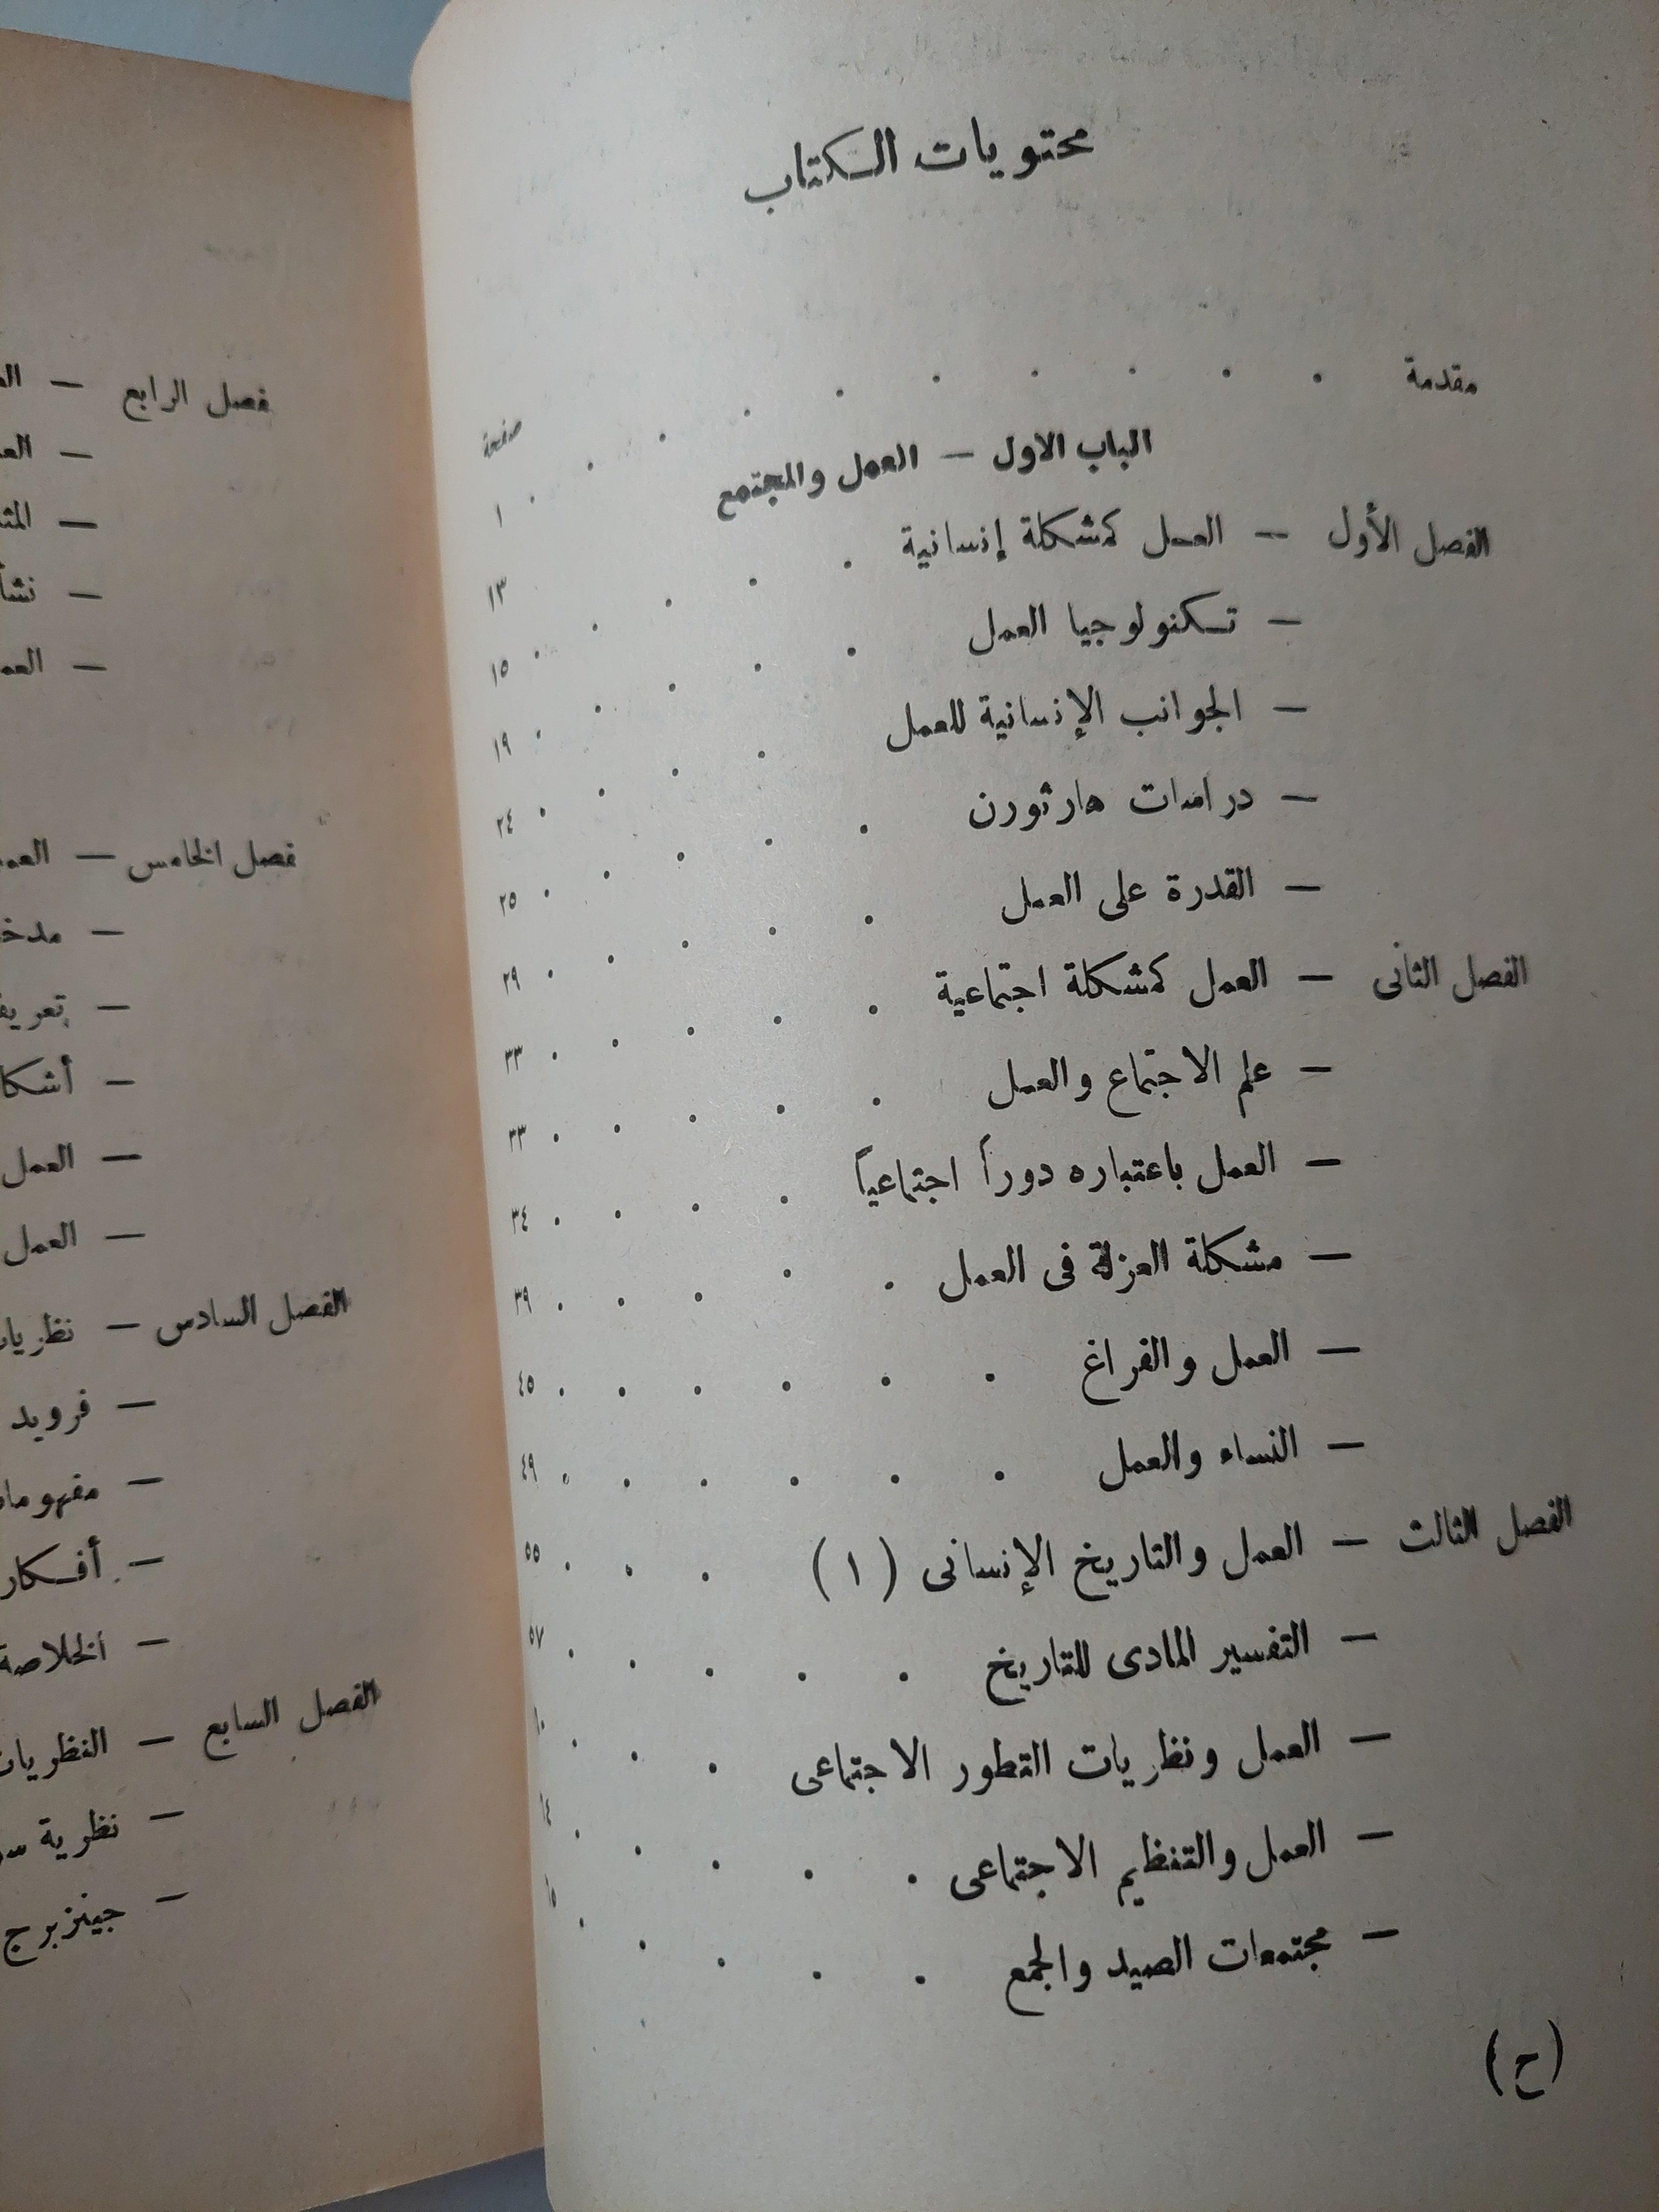 محتويات الكتاب
صفحة
مقدمة . . . . . . . . . . ١
الباب الاول — العمل والمجتمع
الفصل الأول — العمل كمشكلة إنسانية . . . . . ١٣
— تكنولوجيا العمل . . . . . ١٥
— الجوانب الإنسانية للعمل . . . . ١٩
— دراسات هارثورن . . . . . ٢٤
— القدرة على العمل . . . . . ٢٥
الفصل الثانى — العمل كمشكلة اجتماعية . . . . . ٢٩
— علم الاجتماع والعمل . . . . . ٣٣
— العمل باعتباره دوراً اجتماعياً . . . . ٣٣
— مشكلة العزلة فى العمل . . . . . ٣٤
— العمل والفراغ . . . . . . ٣٩
— النساء والعمل . . . . . . ٤٥
الفصل الثالث — العمل والتاريخ الإنسانى ( ١ ) . . . ٤٩
— التفسير المادى للتاريخ . . . . . ٥٥
— العمل ونظريات التطور الاجتماعى . . . ٥٧
— العمل والتنظيم الاجتماعى . . . . .
— مجتمعات الصيد والجمع . . . . .
(ح)
فصل الرابع —
—
—
—
—
فصل الخامس —
—
—
—
— العمل
— العمل
الفصل السادس —
— فرويد
—
—
—
الفصل السابع —
— نظرية
— جينزبرج